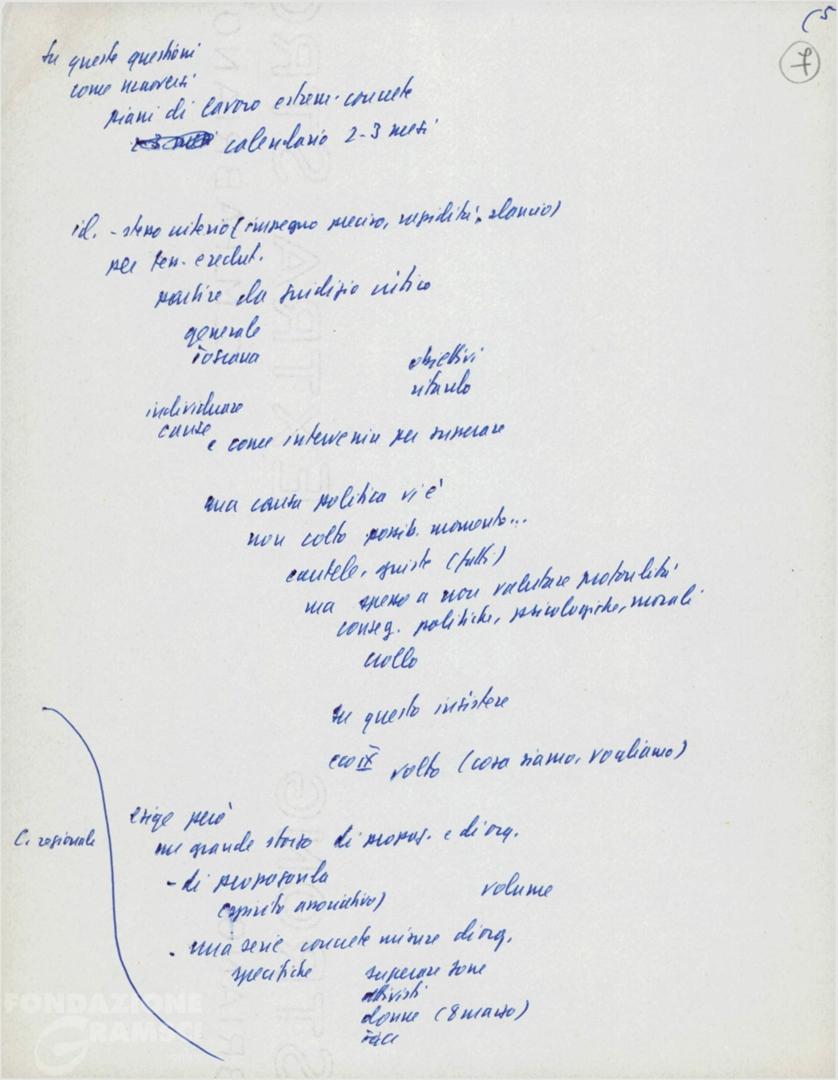 (5
7
su queste questioni
come muoversi
piani di lavoro estrem. concrete
calendario 2-3 mesi
id. - stesso criterio (impegno preciso, rapidità, slancio)
per tess. e reclut.
partire da giudizio critico
generale
Toscana
obiettivi
ritardo
individuare
cause
e come intervenire per superare
una causa politica vi è
non colto possib. momento...
cautele, giuste (tutti)
ma spesso a non valutare
conseg. politiche, psicologiche, morali
crollo
su questo insistere
ecco IX volto (cosa siamo, vogliamo)
C. regionale
esige però
un grande sforzo di propag. e di org.
- di propaganda
(spirito associativo)
volume
- una serie concrete misure di org.
specifiche
superare zone
attivisti
donne (8 marzo)
FONDAZIONE
GRAMSCI